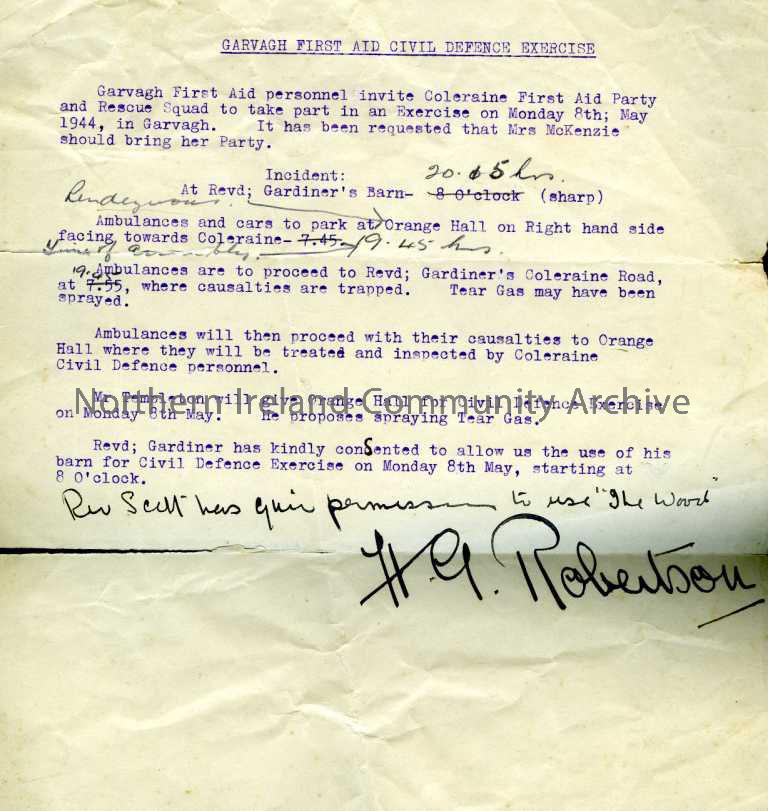 GARVAGH FIRST AID CIVIL DEFENCE EXERCISE
Garvagh First Aid personnel invite Coleraine First Aid Party
and Rescue Squad to take part in an Exercise on Monday 8th; May
1944, in Garvagh. It has been requested that Mrs McKenzie
should bring her Party.
Incident: 20.15 hrs.
At Revd; Gardiner's Barn- 8 O'clock (sharp)
Rendezvous.
Ambulances and cars to park at Orange Hall on Right hand side
facing towards Coleraine- 7.45. 19.45 hrs.
Time of assembly.
Ambulances are to proceed to Revd; Gardiner's Coleraine Road,
at 7.55, where causalties are trapped. Tear Gas may have been
sprayed.
Ambulances will then proceed with their causalties to Orange
Hall where they will be treated and inspected by Coleraine
Civil Defence personnel.
Mr Templeton will give Orange Hall for Civil Defence Exercise
on Monday 8th May. He proposes spraying Tear Gas.
Northern Ireland Community Archive
Revd; Gardiner has kindly conSented to allow us the use of his
barn for Civil Defence Exercise on Monday 8th May, starting at
8 O'clock.
Rev Scott has give permission to use "The Wood"
H. G. Robertson